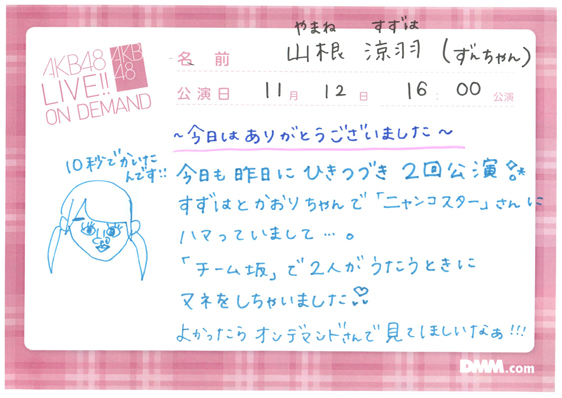 AKB48
LIVE!!
ON DEMAND
AKB
48
やまね すずは
名前 山根 涼羽 (ずんちゃん)
公演日 11月 12日 16:00公演
~今日はありがとうございました~
10秒でかいた
んです!!
今日も昨日にひきつづき2回公演
すずはとかおりちゃんで「ニャンコスター」さんに
ハマっていまして…。
「チーム坂」で2人がうたうときに
マネをしちゃいました♡
よかったらオンデマンドさんで見てほしいなぁ!!!
DMM.com